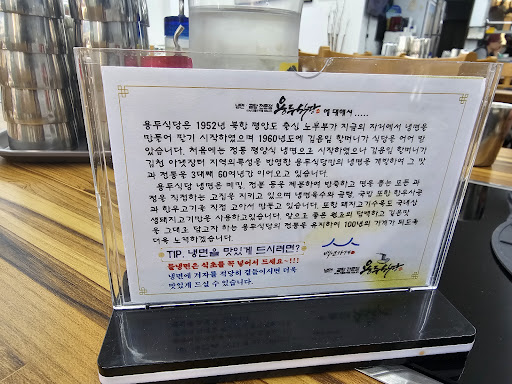 냉면 곰탕 전문점 용두식당 에 대해서.....
용두식당은 1952년 북한 평양도 출신 노부부가 지금의 자리에서 냉면을
만들어 팔기 시작하였으며 1960년도에 김음임 할머니가 식당을 이어 받
았습니다. 처음에는 전통 평양식 냉면으로 시작하였으나 김음임 할머니가
김천 아랫장터 지역의특성을 반영한 용두식당만의 냉면을 개발하여 그 맛
과 전통을 3대째 60여년간 이어오고 있습니다.
용두식당 냉면은 메밀, 전분 등을 제분하여 반죽하고 면을 뽑는 모든 과
정을 직접하는 고집을 지키고 있으며 냉면육수와 곰탕, 국밥 또한 한우사골
과 한우고기를 직접 고아서 만들고 있습니다. 또한 돼지고기수육도 국내산
생돼지고기만을 사용하고있습니다. 앞으로 좋은 원료의 담백하고 깊은맛
을 그대로 담고자 하는 용두식당의 전통을 유지하여 100년의 가게가 되도록
더욱 노력하겠습니다.
TIP. 냉면을 맛있게 드시려면?
물냉면은 식초를 꼭 넣어서 드세요~!!!
냉면에 겨자를 적당히 곁들이시면 더욱
맛있게 드실 수 있습니다.
백년가게
냉면 곰탕 전문점
용두식당